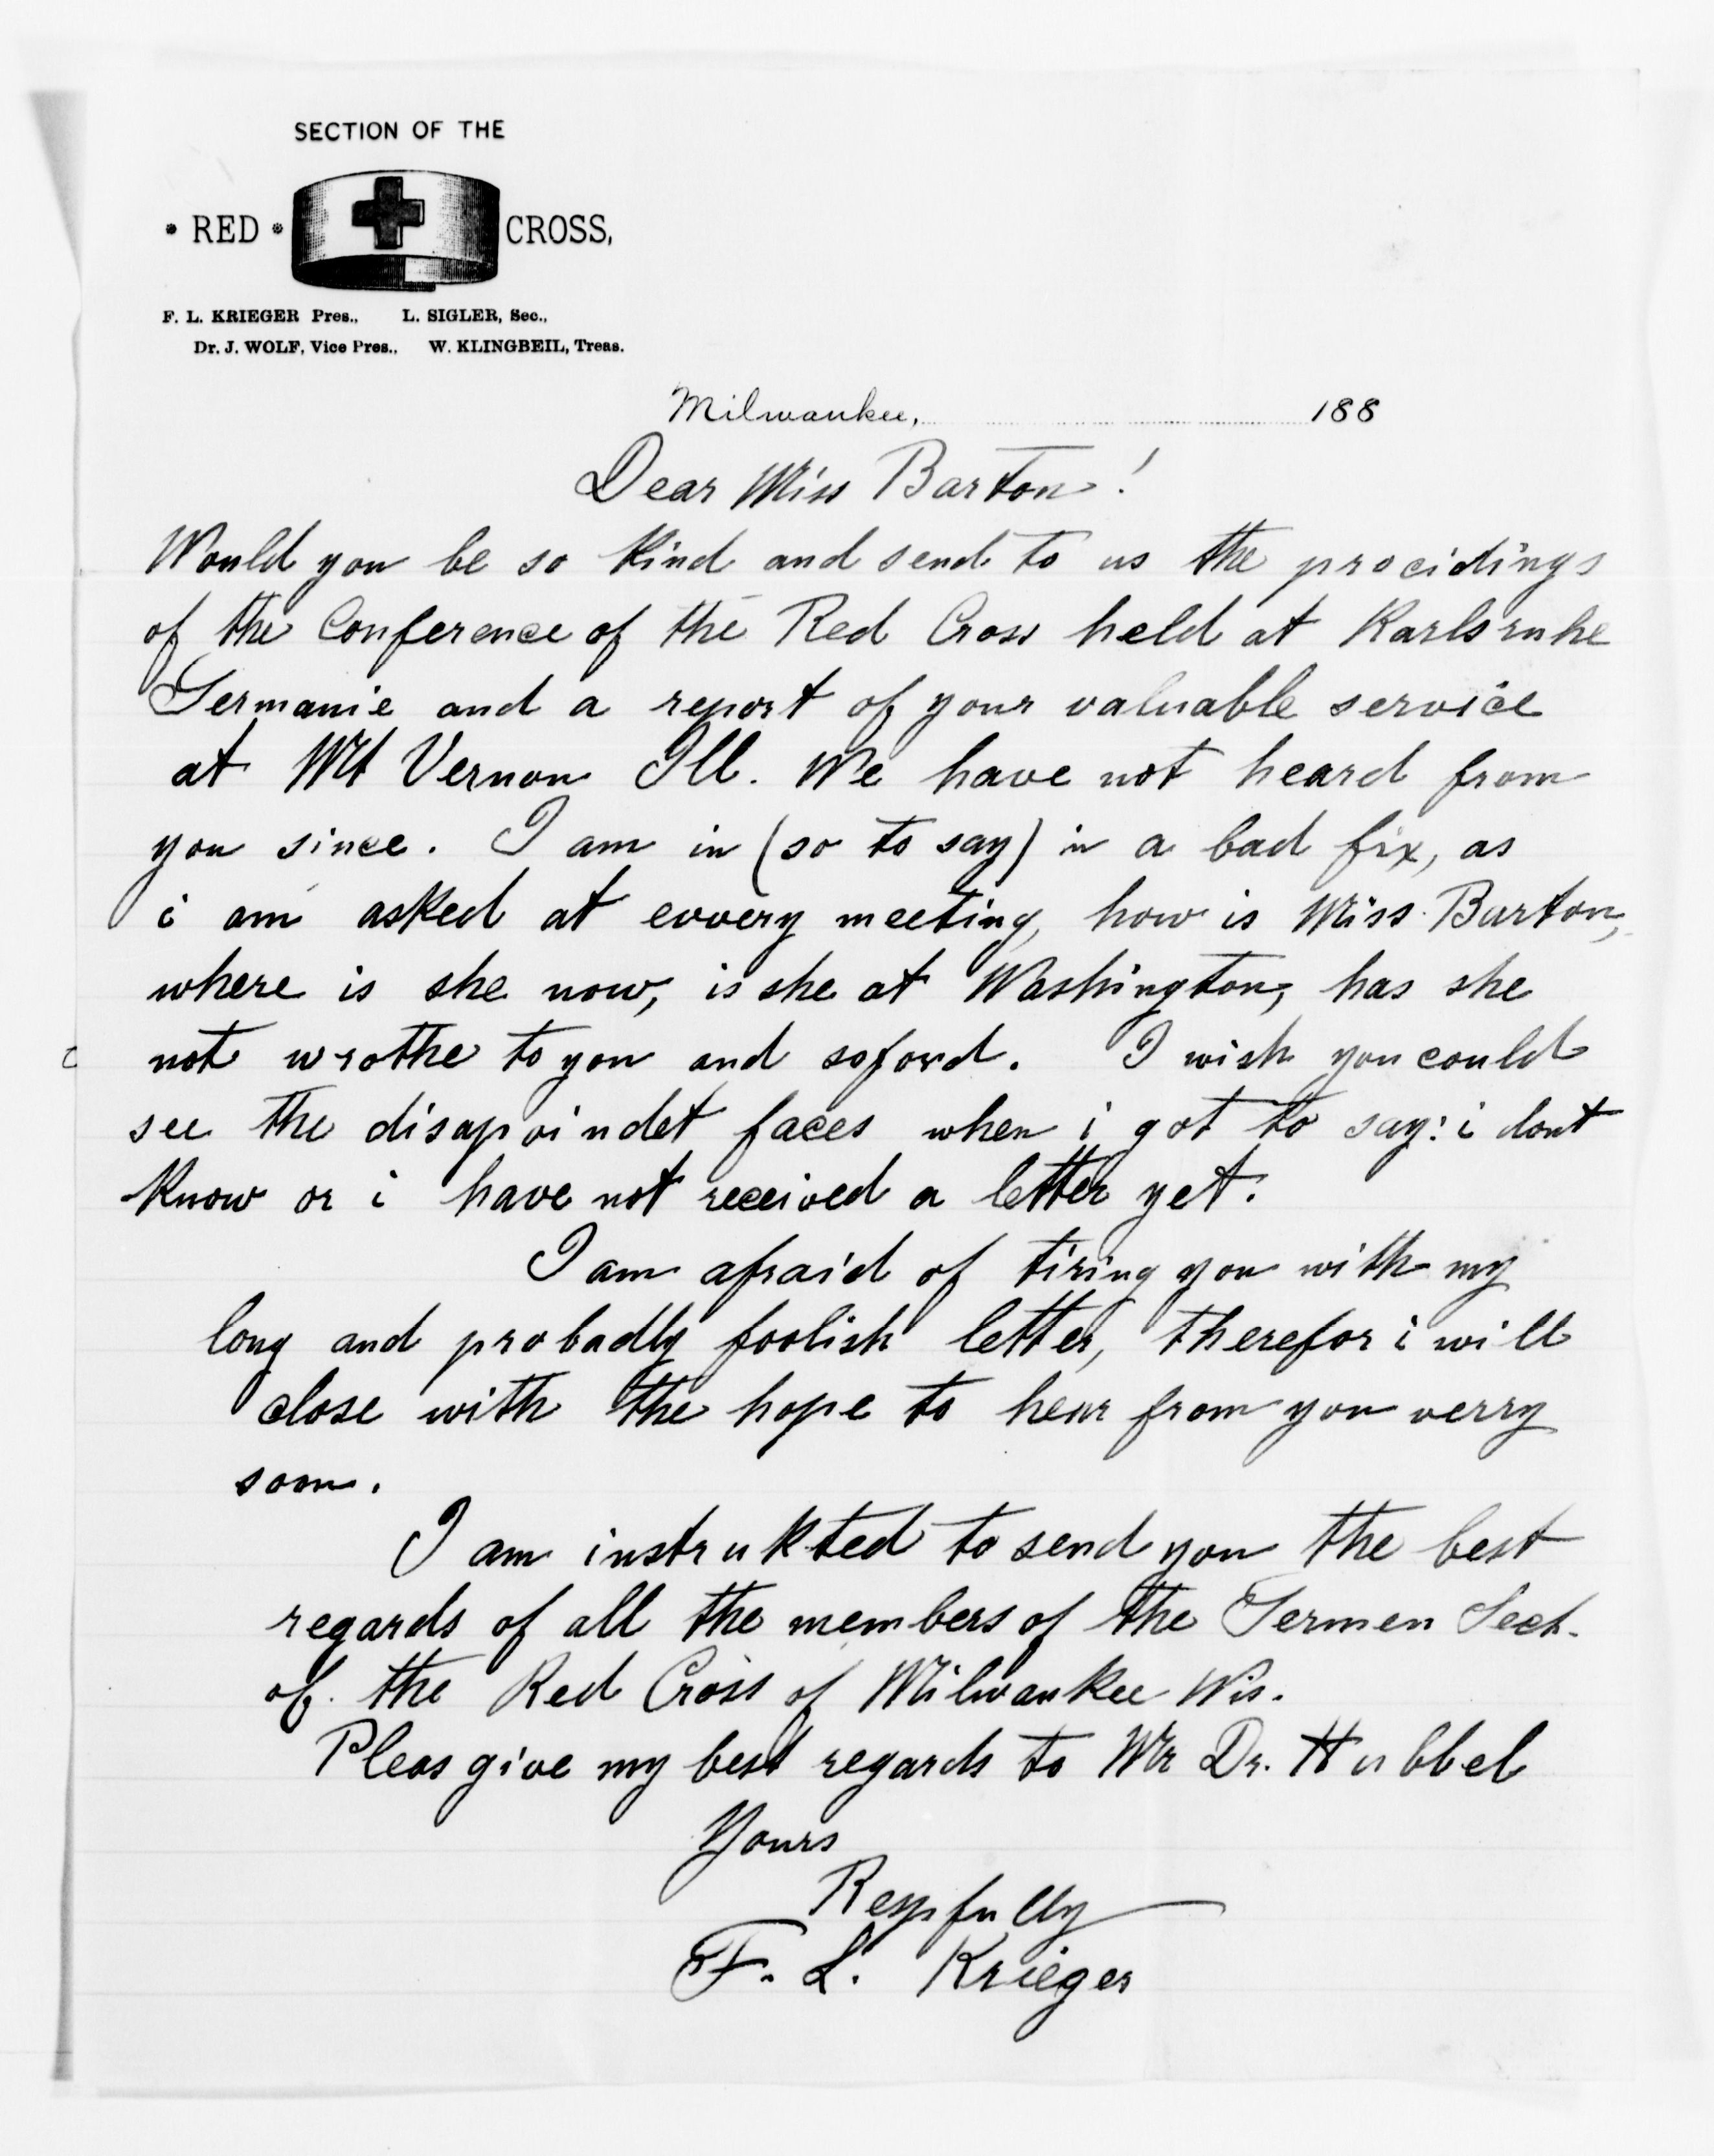 SECTION OF THE
* RED * CROSS,
F. L. KRIEGER Pres., L. SIGLER, Sec.,
Dr. J. WOLF, Vice Pres., W. KLINGBEIL, Treas.
Milwaukee, 188
Dear Miss Barton!
Would you be so kind and send to us the procidings
of the Conference of the Red Cross held at Karlsruhe
Germanie and a report of your valuable service
at Mt Vernon Ill. We have not heard from
you since. I am in (so to say) in a bad fix, as
i am asked at evvery meeting, how is Miss Barton,
where is she now, is she at Washington, has she
not wrothe to you and soford. I wish you could
see the disapoindet faces when i got to say: i dont
Know or i have not received a letter yet.
I am afraid of tiring you with my
long and probadly foolish letter, therefor i will
close with the hope to hear from you verry
soon.
I am instrukted to send you the best
regards of all the members of the Germen Sect.
of the Red Cross of Milwaukee Wis.
Pleas give my best regards to Mr Dr. Hubbel
Yours
Respfully
F. L. Krieger